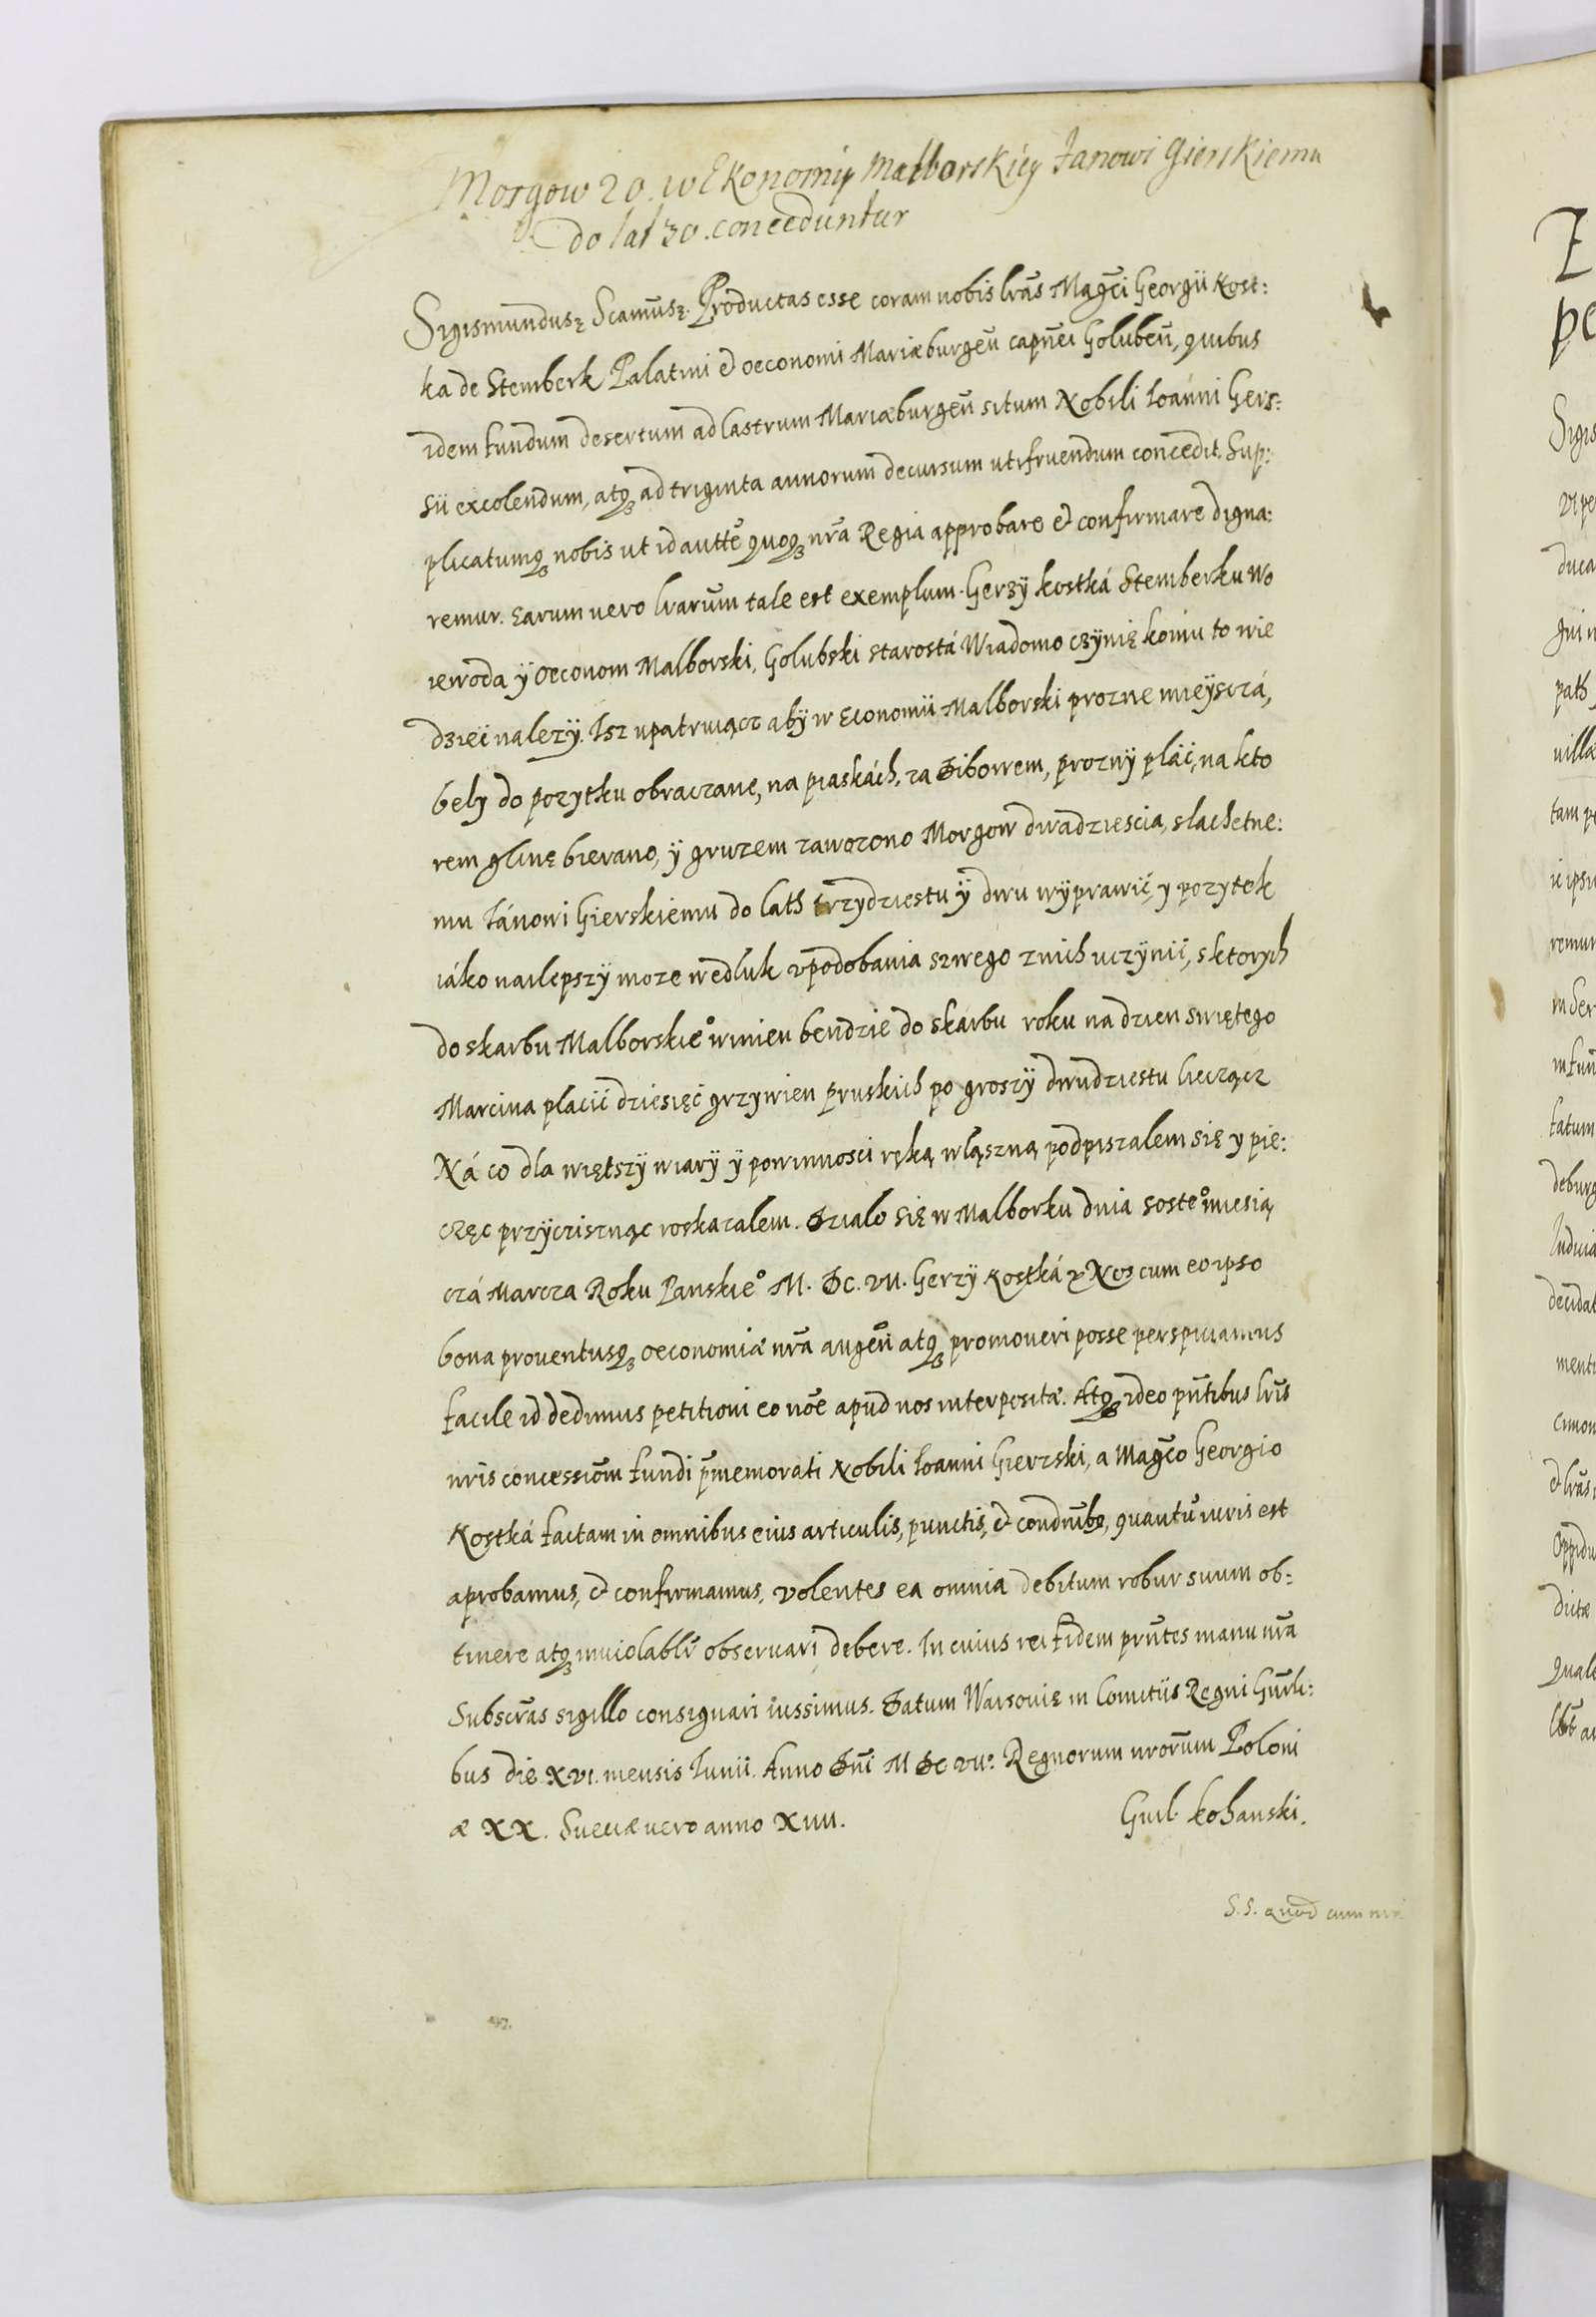 Morgow 20. w Ekonomiy Malborskiey Janowi Gierskiemu
do lat 30. conceduntur
Sigismundusę Scam̃usę. Productas esse coram nobis lrãs Mag̃ci Georgii Kost:
ka de Stemberk Palatini et oeconomi Mariæburgeñ capñei Golubeñ, quibus
idem fundum desertum ad Castrum Mariæburgeñ situm Nobili Ioanni Gers:
sii excolendum, atq; ad triginta annorum decursum utifruendum concedit. Sup:
plicatumq; nobis ut id auttẽ quoq; nrã Regia approbare et confirmare digna:
remur. Earum vero lrarũm tale est exemplum. Gerzÿ kostká Stemberku Wo
iewoda ÿ Oeconom Malborski, Golubski starostá Wiadomo czÿnię komu to wie
dzieć nalezÿ. Isz upatruiącz abÿ w Economii Malborski prozne mieÿsczá,
bely do pozytku obraczane, na piaskách, za Dibowem, proznÿ plác, na kto
rem glinę bierano, ÿ gruzem zawozono Morgow dwadziescia, slachetne:
mu Jánowi Gierskiemu do lath trzydziestu ÿ dwu wÿprawić, y pozytek
iáko nailepszÿ moze wedluk upodobania szwego z nich uczÿnić, s ktorych
do skarbu Malborskie° winien bendzie do skarbu roku na dzien swiętego
Marcina placić dziesięć grzywien pruskich po groszÿ dwudziestu lieczącz
Ná co dla więtszÿ wiarÿ ÿ powinnosci ręką wląszną podpiszalem się y pie:
częc przÿczisznąc roskazalem. Dzialo się w Malborku dnia soste° miesią
czá Marcza Roku Panskie° M. DC. VII. Gerzÿ Kostká. Nos cum eo ipso
bona proventusq; oeconomiæ nrã augeñ atq; promoveri posse perspiciamus
facile id dedimus petitioni eo nõe apud nos interpositæ. Atq; ideo pñtibus lrĩs
nris concessiom̃ fundi p̃memorati Nobili Ioanni Gierzski, a Mag̃co Georgio
Kostká factam in omnibus eius articulis, punctis, et condnĩbs, quantũ iuris est
aprobamus, et confirmamus, volentes ea omnia debitum robur suum ob:
tinere atq; inviolablr̃ observari debere. In cuius rei fidem prñtes manu nrã
Subscr̃as sigillo consignari iussimus. Datum Warsovię in Comitiis Regni Gñrli:
bus die XVI. mensis Iunii. Anno Dñi M DC VII° Regnorum nrorũm Poloni
æ XX. Sueciæ vero anno XIIII. Guil. kohanski.
S. S. quod cum